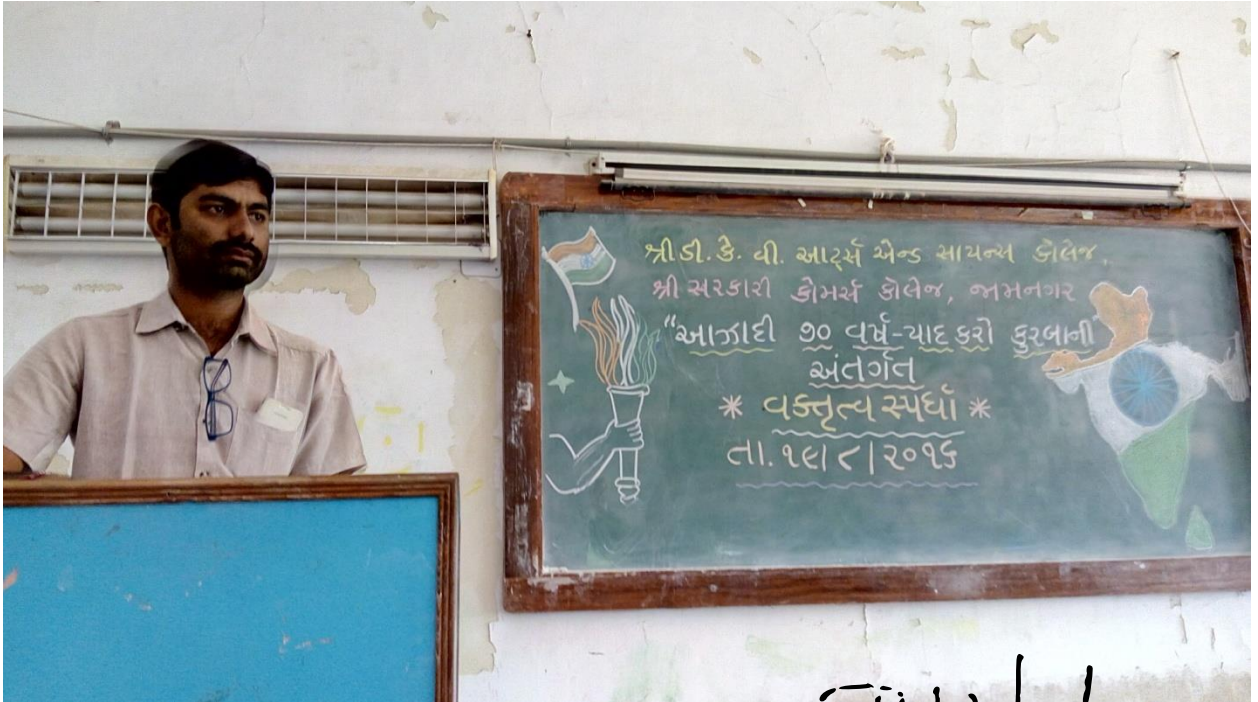 શ્રી ડી. કે. વી. આર્ટ્સ એન્ડ સાયન્સ કોલેજ,
શ્રી સરકારી કોમર્સ કોલેજ, જામનગર
"આઝાદી ૭૦ વર્ષ-યાદ કરો કુરબાની
અંતર્ગત
* વક્તૃત્વ સ્પર્ધા *
તા. ૧૯/૮/૨૦૧૬